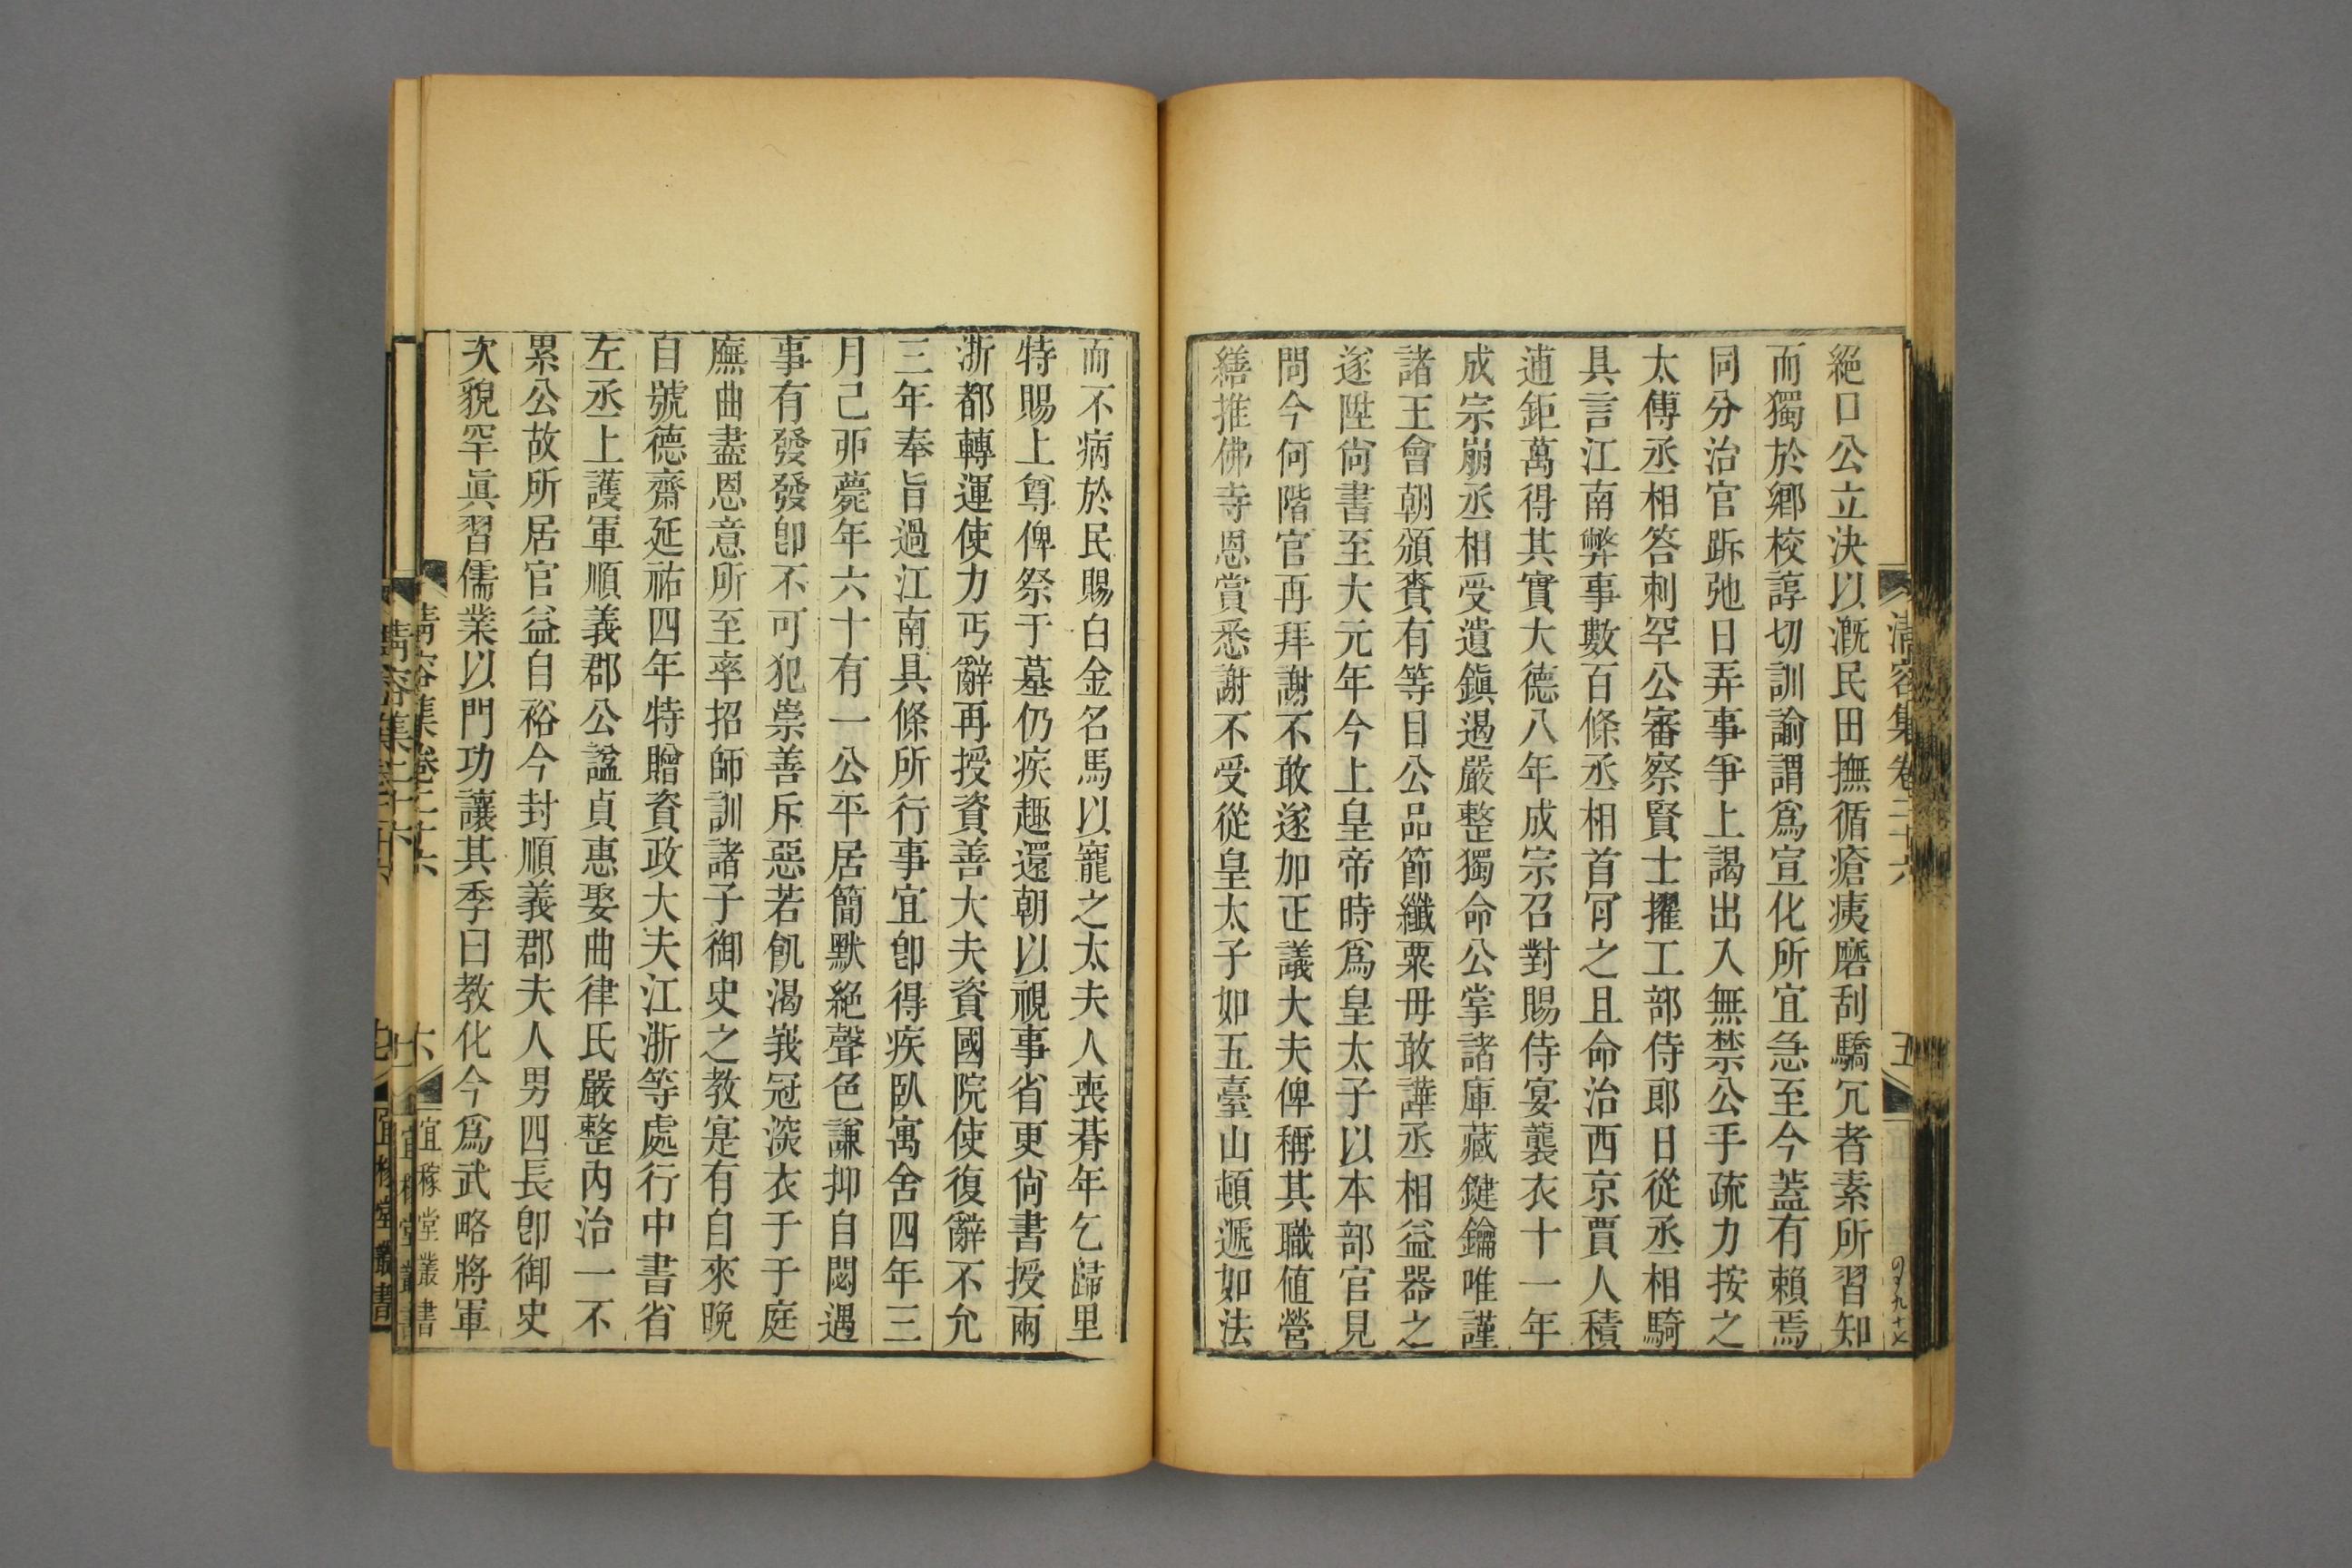 清容集卷二十六
五
絕口公立決以漑民田撫循瘡痍磨刮驕冗者素所習知
而獨於鄉校諄切訓諭謂爲宣化所宜急至今蓋有賴焉
同分治官跅弛日弄事爭上謁出入無禁公手疏力按之
太傅丞相答刺罕公審察賢士擢工部侍郞日從丞相騎
具言江南弊事數百條丞相首肎之且命治西京賈人積
逋鉅萬得其實大德八年成宗召對賜侍宴襲衣十一年
成宗崩丞相受遺鎭遏嚴整獨命公掌諸庫藏鍵鑰唯謹
諸王會朝頒賚有等日公品節纖粟毋敢譁丞相益器之
遂陞尙書至大元年今上皇帝時爲皇太子以本部官見
問今何階官再拜謝不敢遂加正議大夫俾稱其職値營
繕推佛寺恩賞悉謝不受從皇太子如五臺山頓遞如法
而不病於民賜白金名馬以寵之太夫人喪朞年乞歸里
特賜上尊俾祭于墓仍疾趣還朝以視事省更尙書授兩
浙都轉運使力丐辭再授資善大夫資國院使復辭不允
三年奉旨過江南具條所行事宜卽得疾臥寓舍四年三
月己丣薨年六十有一公平居簡默絕聲色謙抑自閟遇
事有發發卽不可犯崇善斥惡若飢渴峩冠深衣于于庭
廡曲盡恩意所至率招師訓諸子御史之教寔有自來晩
自號德齋延祐四年特贈資政大夫江浙等處行中書省
左丞上護軍順義郡公諡貞惠娶曲律氏嚴整內治一不
累公故所居官益自裕今封順義郡夫人男四長卽御史
次貌罕眞習儒業以門功讓其季曰教化今爲武略將軍
清容集卷二十六
六
宜稼堂叢書